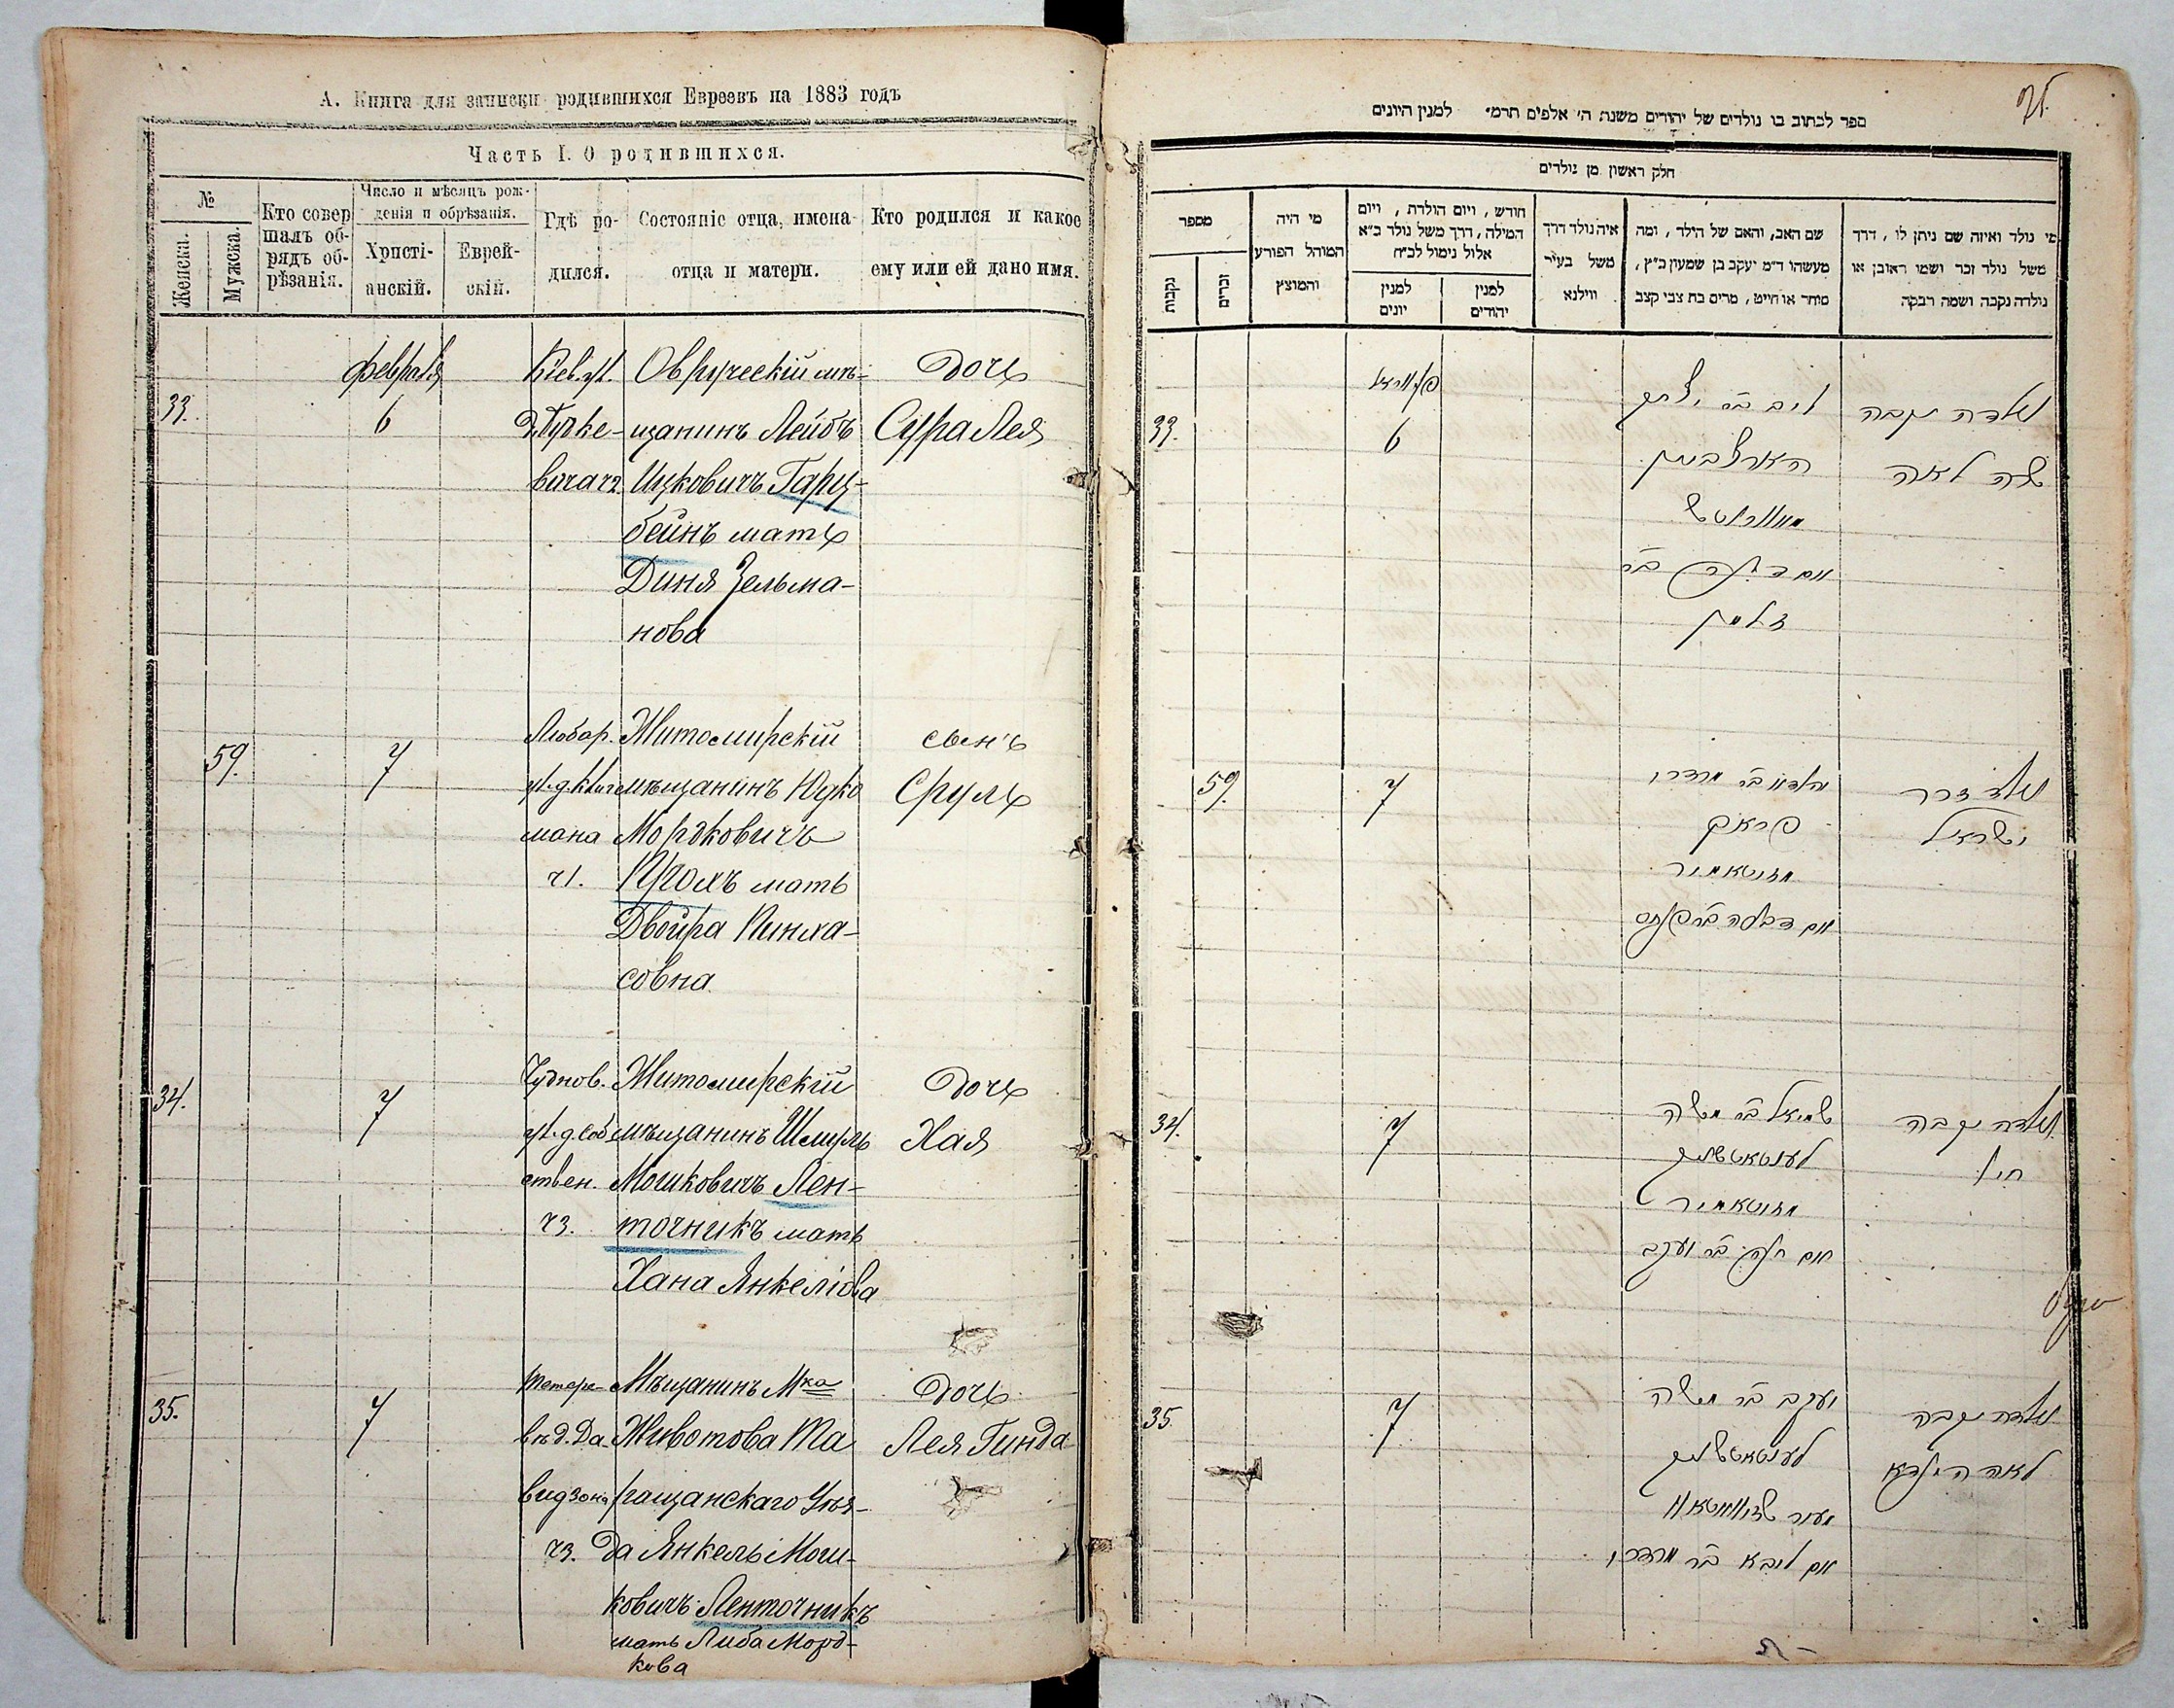 А. Книга для записки родившихся Евреевъ на 1883 годъ
Часть I. О родившихся.
№
Женска.
Мужска.
Кто совер
шалъ об-
рядъ об-
рѣзанія.
Число и мѣсяцъ рож-
денія и обрѣзанія.
Христі-
анскій.
Еврей-
скій.
Гдѣ ро-
дился.
Состояніе отца, имена
отца и матери.
Кто родился и какое
ему или ей дано имя.
33.
февраля
6
Кіев. ул.
Овручскій мѣ-
щанинъ Лейбъ
Ицковичъ Гарц-
бейнъ мать
Диня Зельма-
нова
Дочь
Сура Лея
59.
7
Любар.
ул. д.
мана
ч1.
Житомирскій
мѣщанинъ Юдко
Мордковичъ
мать
Двойра Пинха-
совна
сынъ
Сруль
34.
7
Чуднов.
ул. д. Соб
ствен.
ч3.
Житомирскій
мѣщанинъ Шмуль
Мошковичъ Лен-
точникъ мать
Хана Янкеліова
Дочь
Хая
35.
7
Тетере-
в. д. Да-
видзона
ч3.
Мѣщанинъ Мка
Животова Та
ращанскаго Уѣз-
да Янкель Мош-
ковичъ Ленточникъ
мать Либа Морд-
кова
Дочь
Лея Гинда
ספר לכתוב בו נולדים של יהודים משנת ה' אלפים תרמ" למנין היונים
חלק ראשון מן נולדים
מספר
נקבות
זכרים
מי היה
המוהל הפורע
והמוצץ
חודש, ויום הולדת, ויום
המילה, דרך משל נולד כ"א
אלול נימול לכ"ח
למנין
יונים
למנין
יהודים
איה נולד דרך
משל בעיר
ווילנא
שם האב, והאם של הילד, ומה
מעשהו ד"מ יעקב בן שמעון כ"ץ,
סוחר או חייט, מרים בת צבי קצב
מי נולד ואיזה שם ניתן לו, דרך
משל נולד זכר ושמו ראובן או
נולדה נקבה ושמה רבקה
33.
6
ליב בר יצחק
אם דינה בר
זלמן
נולדה נקבה
שרה לאה
59.
7
מרדכי
פראק
מזיטאמיר
אם דבורה בר פנחס
נולד זכר
ישראל
34.
7
שמואל בר משה
לענטאטשניק
מזיטאמיר
אם חנה בר יעקב
נולדה נקבה
חי'
35.
7
יעקב בר משה
לענטאטשניק
אם ליבא בר מרדכי
נולדה נקבה
לאה הינדא